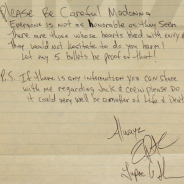 Please Be Careful Madonna
Everyone is not as honorable as they seem
There are those whose hearts bleed with envy &
They would not hesitate to do you harm!
Let my 5 bullets be proof of that!
P.S. If there is any information you can share
with me regarding Jack & crew please do
it could very well be a matter of Life & Death
Always